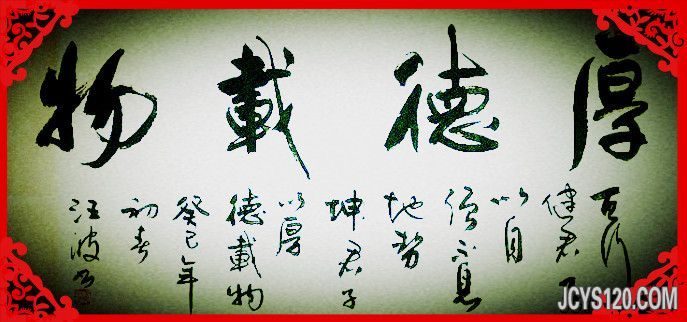 厚德載物
行
健君
以自
强不息
地势
坤君子
以厚
德載物
癸巳年
初春
汪波
JCYS120.COM